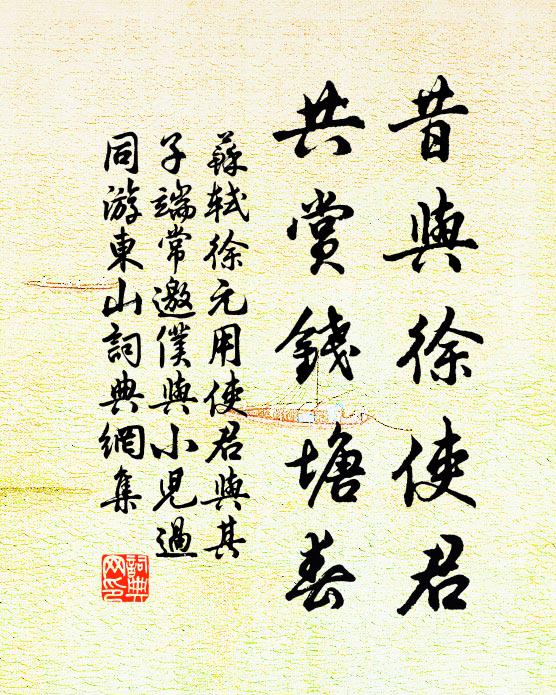 昔與徐使君
共賞錢塘春
蘇軾徐元用使君與其
子端常邀僕與小兒過
同游東山詞典網集
詞典
网印